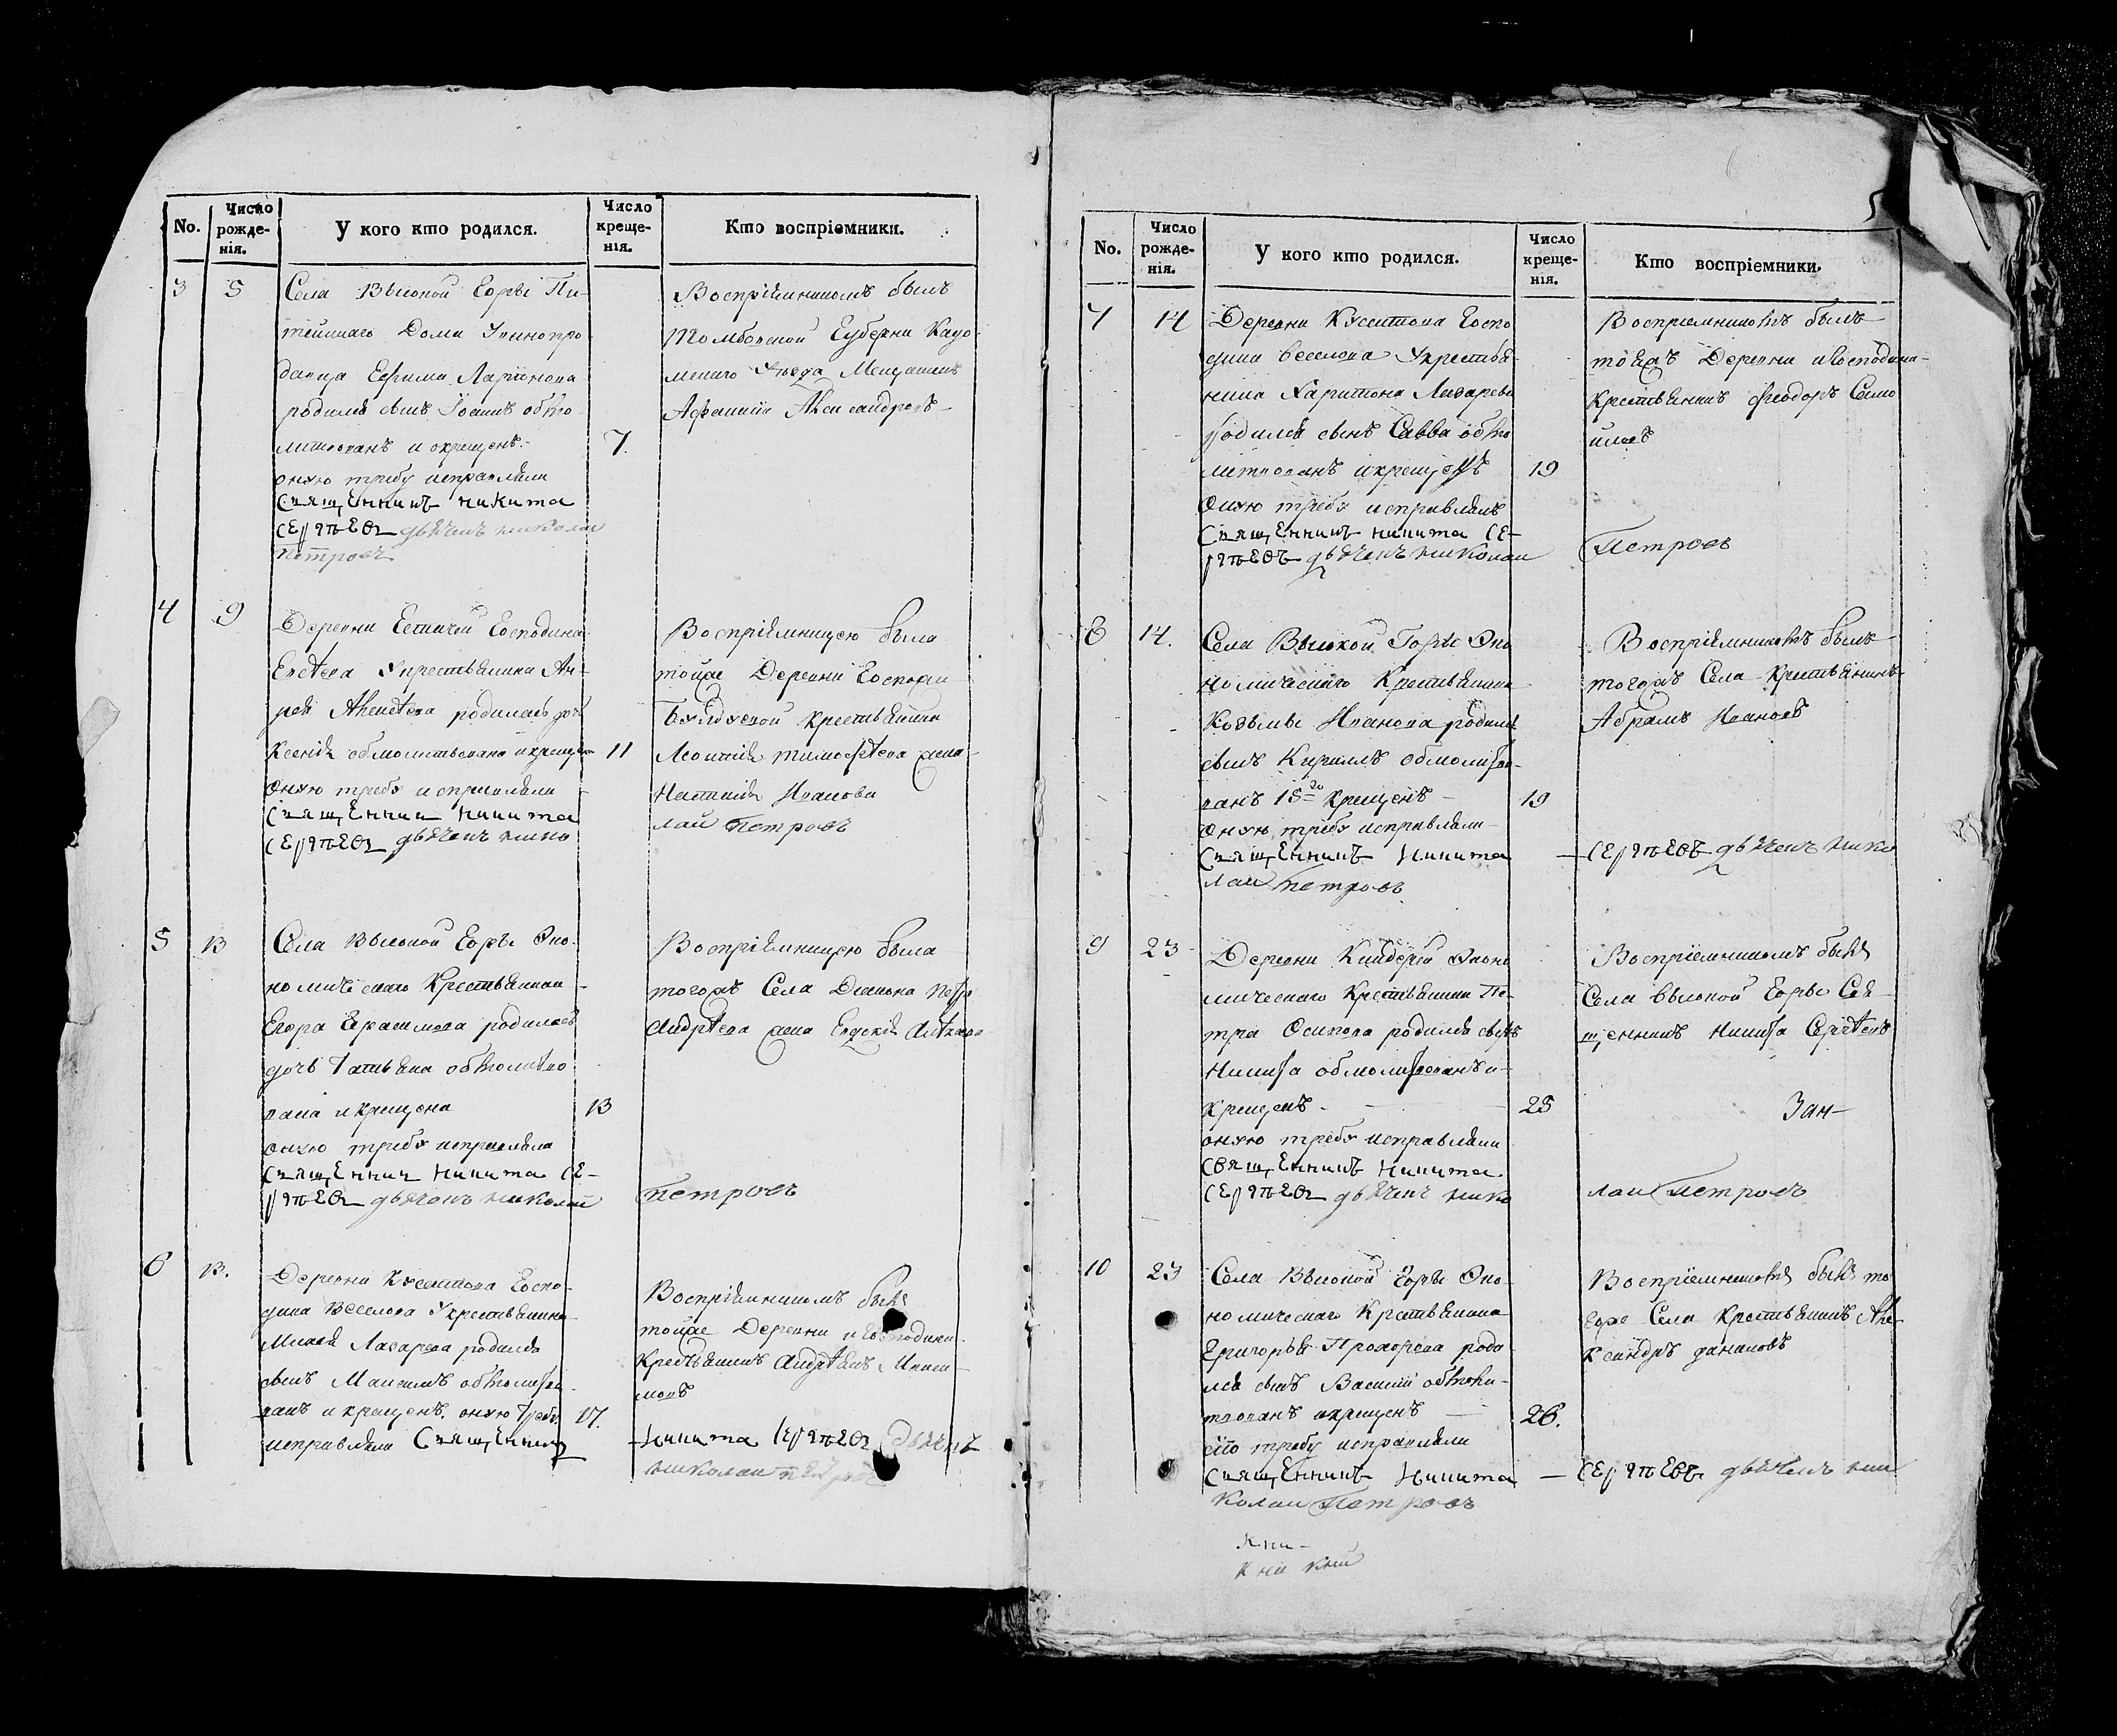 No.
Число рожде-нія.
У кого кто родился.
Число креще-нія.
Кто воспріемники.
3
5
Села Высокой Горы Пи-
тейнаго Дома Увинопро
давца Ефима Ларионова
родился сынъ Іоаннъ обмо
литвованъ и окрещенъ.
оную требу исправляли
Священникъ Никита
Сергѣевъ дьячекъ николаи
петровъ
7.
Воспріемникомъ былъ
Томбовской Губерни
Уѣзда Мещанинъ
4
9
Деревни Господина
Укрестьянина Ан-
родилась дочь
Ксенія обмолитвована икрещена
Оную требу исправляли
Священник Никита
Сергѣевъ дьячекъ нико
11
Воспріемницею была
тойже Деревни Госпожи
крестьянина
Леонтія тимофѣева жена
Наталія Иванова
лай петровъ
5
13
Села Высокой Горы Эко-
номическаго Крестьянина
Егора Герасимова родилась
дочь Татьяна обмолитво
вана и крещена
оную требу исправляли
Священник Никита Се-
ргѣевъ дьячекъ николай
13
Воспріемницею была
тогожъ Села Диакона Петра
Андрѣева жена Евдокія
петровъ
6
13.
Деревни Куселтова Госпо-
дина Веселова Укрестьянина
Лазарева родился
сынъ обмолитво-
ванъ и крещенъ. оную требу
исправляли Священикъ
17.
Воспріемникомъ былъ
тойже Деревни и Господина
Крестьянинъ Андрѣянъ
Никита Сергѣевъ Дьячекъ
николаи петровъ
No.
Число рожде-нія.
У кого кто родился.
Число креще-нія.
Кто воспріемники.
7
14
Деревни Куселтова Госпо
дина Веселова Укрестья-
нина Харитона Лазарева
родился сынъ Савва обмо
литвованъ икрещенъ
Оную требу исправляли
Священникъ Никита Се-
ргѣевъ дьячекъ николаи
19
Воспріемникомъ былъ
тоежъ Деревни иГосподина
Крестьянинъ Феодоръ Само
йловъ
петровъ
8
14.
Села Высокой Горы Эко
номическаго Крестьянина
Козьмы Иванова родился
сынъ Кириллъ обмолитво-
ванъ 15го Крещенъ
Оную требу исправляли
Священникъ Никита
лаи петровъ
19
Воспріемникомъ былъ
тогожъ Села Крестьянинъ
Абрамъ Ивановъ
Сергѣевъ дьячекъ нико
9
23
Деревни Киндерей Эконо
мическаго Крестьянина Пе-
тра Осипова родился сынъ
Никита обмолитвованъ и
крещенъ.
оную требу исправляли
Священникъ Никита
Сергѣевъ дьячекъ нико
25
Воспріемникомъ былъ
Села высокой Горы Свя
щенникъ Никита Сергѣевъ
Зан
лаи петровъ
10
23
Села Высокой Горы Эко-
номическаго Крестьянина
Григорья Прохорова роди
лся сынъ Василій обмоли-
твованъ икрещенъ
сію требу исправляли
Священникъ Никита
колаи петровъ
26.
Воспріемникомъ былъ то
гоже Села Крестьянинъ Але-
ксандръ данииловъ
Сергѣевъ дьячекъ ни